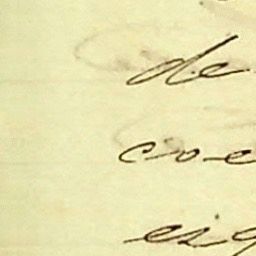 de
coe
eig